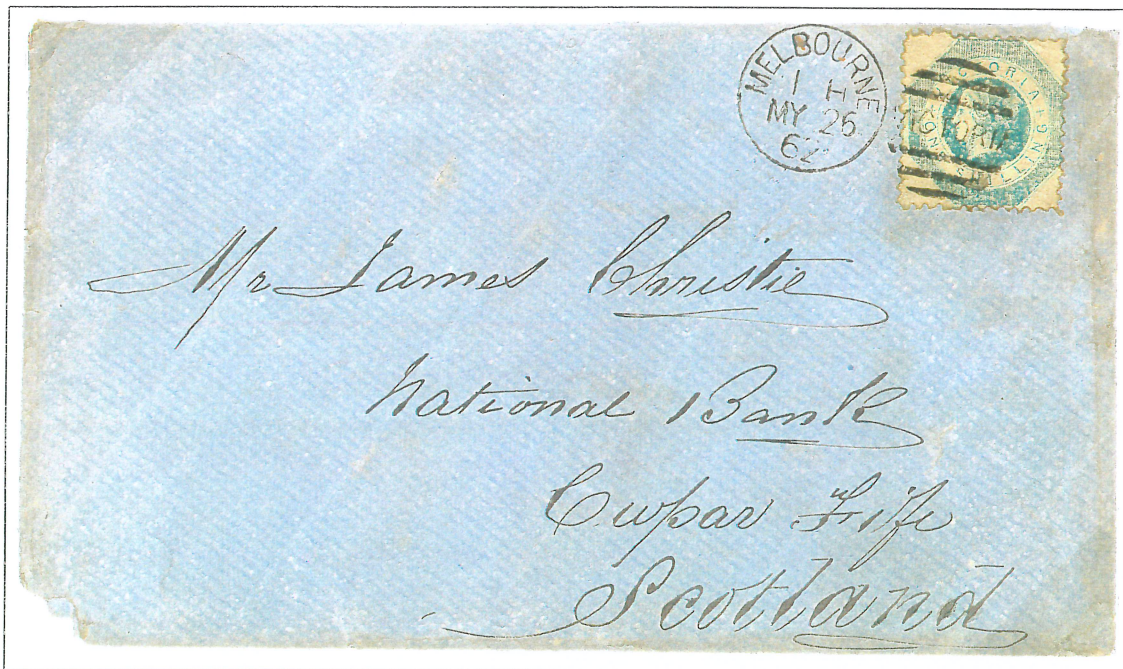 MELBOURNE
1 H
MY 26
62
VICTORIA
VICTORIA
ONE SHILLING
Mr James Christie
National Bank
Cupar Fife
Scotland